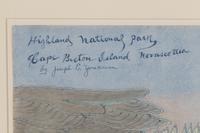 Highland National Park
Cape Breton Island Nova Scotia
by Joseph C.